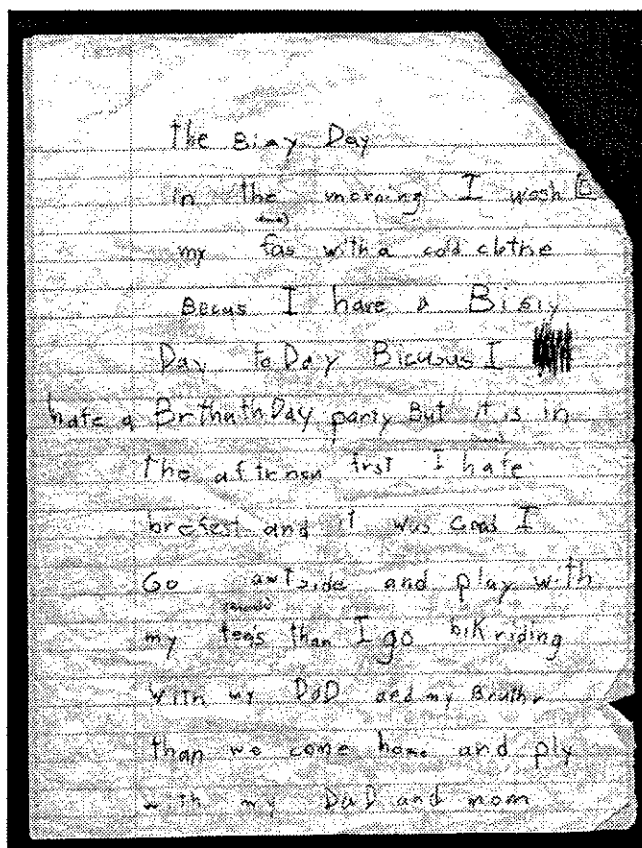 the Bisy Day
in the morning I wosh
my fas with a cold clothe
Becus I have a Bisiy
Day to Day Bicusus I
hafe a Brthuth Day party But it is in
the aftenen frst I hafe
brefest and it was Good I
Go awtside and play with
my than I go bik riding
with my DaD and my Bruthr
than we come home and ply
with my DaD and mom